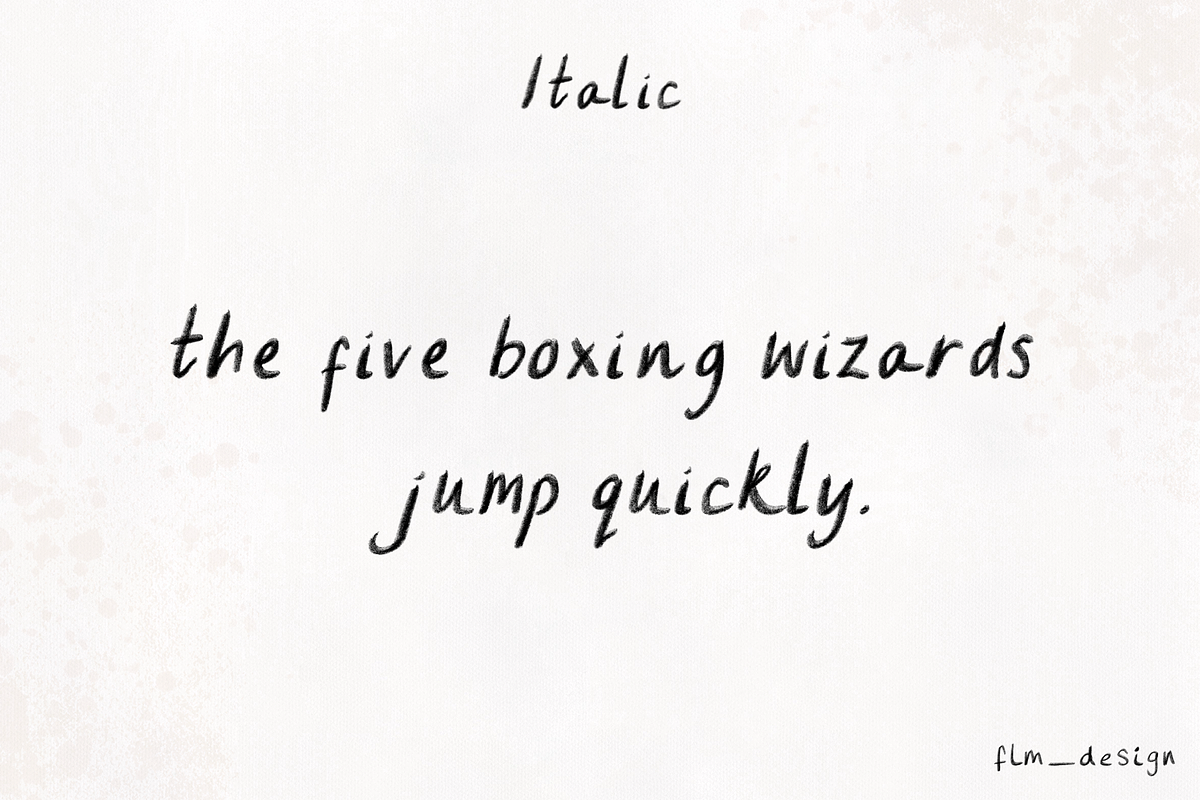 Italic
the five boxing wizards
jump quickly.
flm_design